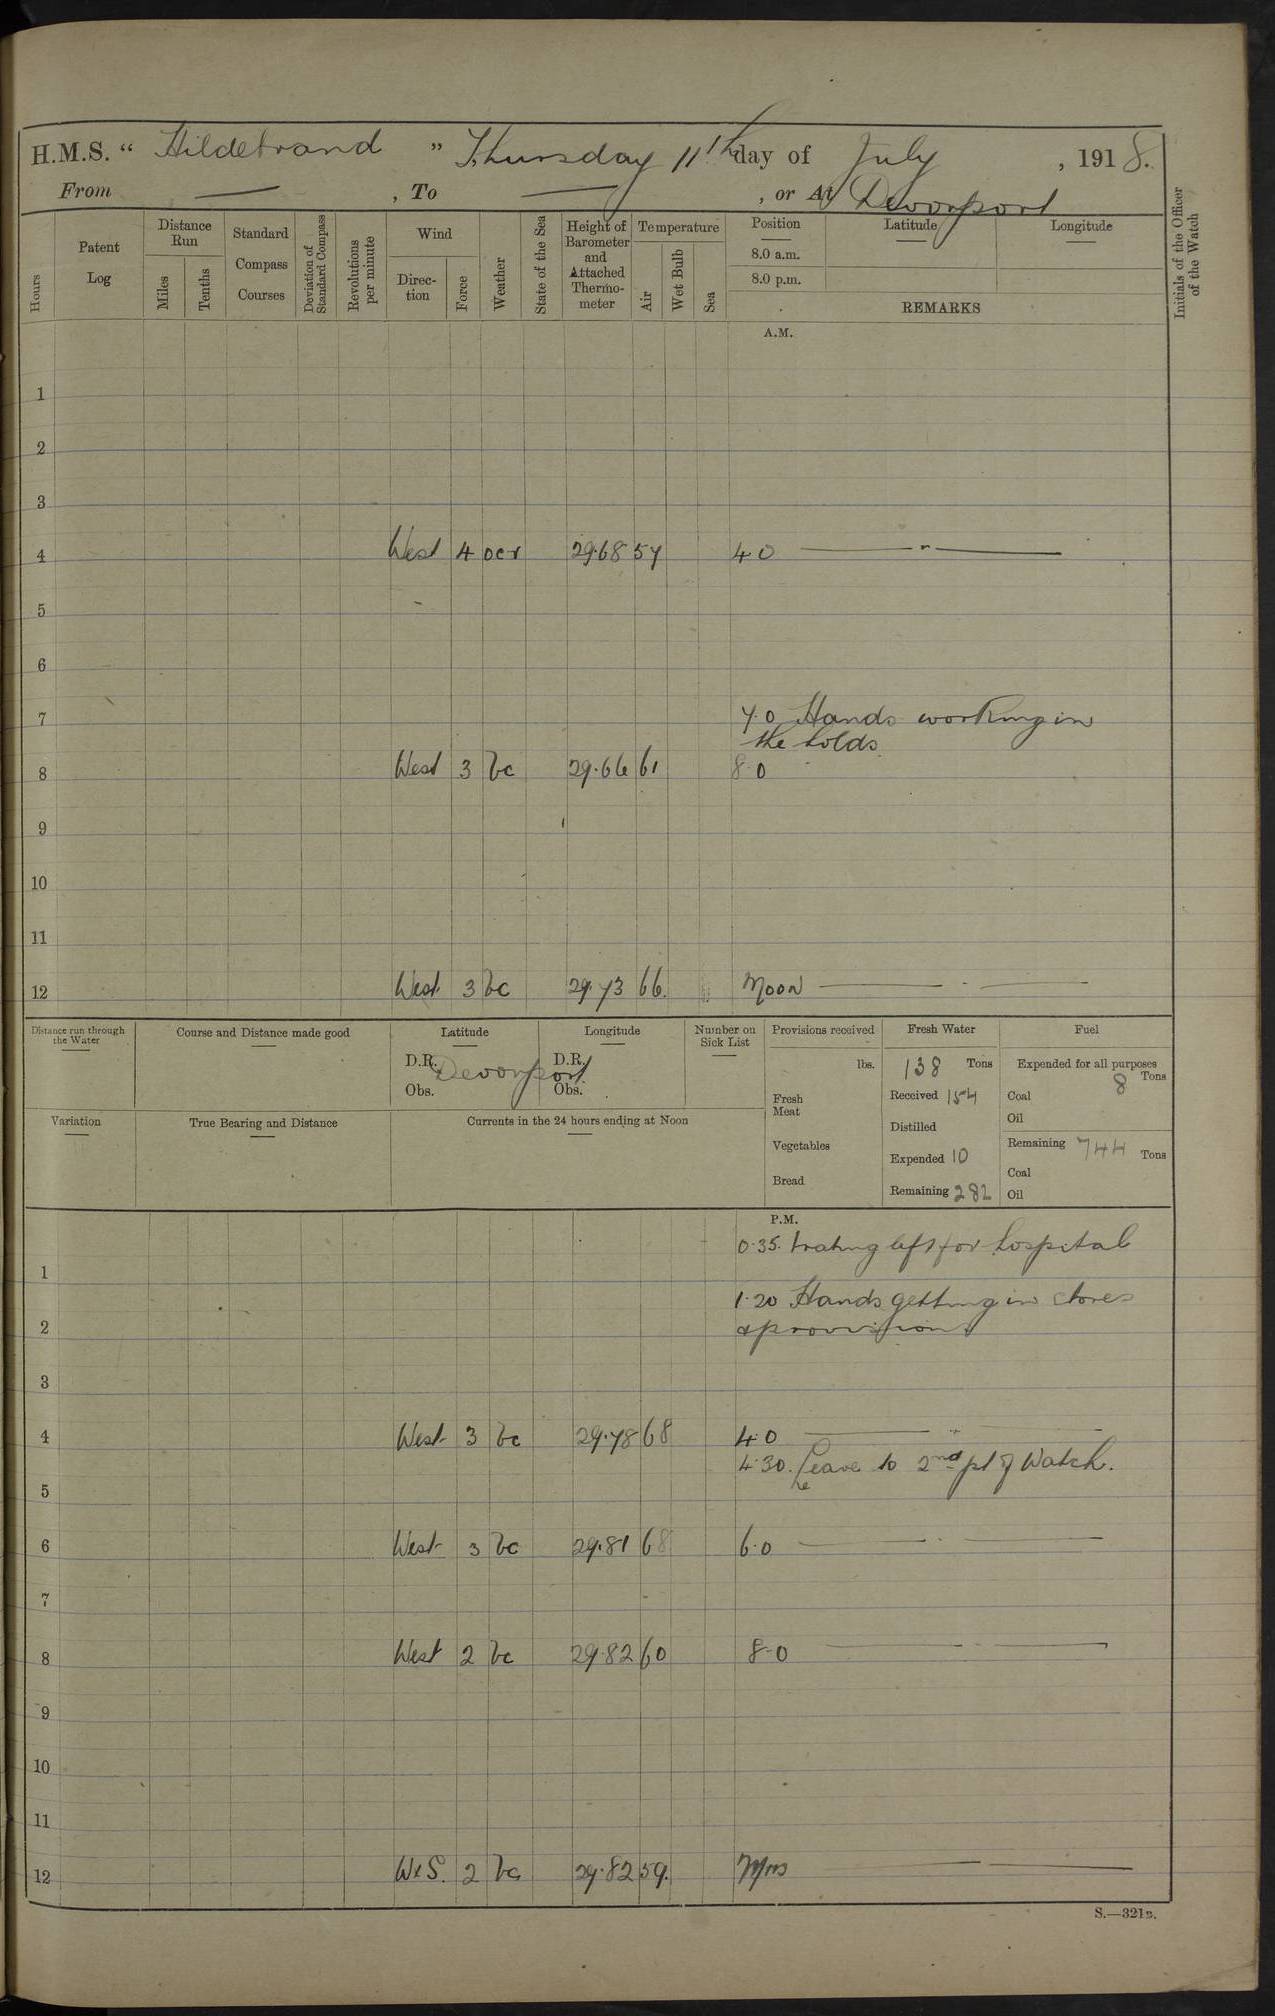 H.M.S. “ Hildebrand ” Thursday 11th day of July , 1918.
From — , To — , or At Devonport
Hours
Patent Log
Distance Run
Miles
Tenths
Standard Compass Courses
Deviation of Standard Compass
Revolutions per minute
Wind
Direction
Force
Weather
State of the Sea
Height of Barometer and Attached Thermometer
Temperature
Air
Wet Bulb
Sea
Position
8.0 a.m.
8.0 p.m.
Latitude
Longitude
REMARKS
Initials of the Officer of the Watch
A.M.
1
2
3
4 West 4 ocr 29.68 57 4.0 — " —
5
6
7 7.0 Hands working in
the holds
8 West 3 bc 29.66 61 8.0
9
10
11
12 West 3 bc 29.73 66. Noon — . —
Distance run through the Water
Course and Distance made good
Latitude
D.R.
Obs.
Longitude
D.R.
Obs.
Devonport
Number on Sick List
Provisions received
lbs.
Fresh Meat
Vegetables
Bread
Fresh Water
138 Tons
Received 154
Distilled
Expended 10
Remaining 282
Fuel
Expended for all purposes
8 Tons
Coal
Oil
Remaining 744 Tons
Coal
Oil
Variation
True Bearing and Distance
Currents in the 24 hours ending at Noon
P.M.
0.35. 1 rating left for hospital
1
1.20 Hands getting in stores
2 & provisions
3
4 West 3 bc 29.78 68 4.0 — " —
4.30. Leave to 2nd pt of Watch.
5
6 West 3 bc 29.81 68 6.0 — . —
7
8 West 2 bc 29.82 60 8.0 — . —
9
10
11
12 WxS. 2 bc 29.82 59. — —
S.—321B.